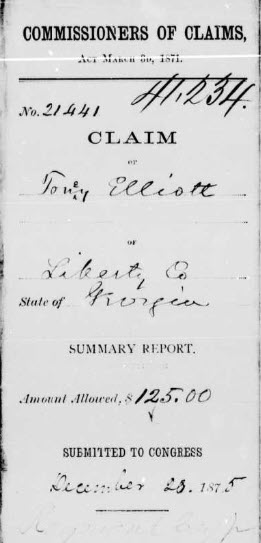 COMMISSIONERS OF CLAIMS,
ACT MARCH 3D, 1871.
41,234.
No. 21441
CLAIM
OF
Toney Elliott
OF
Liberty Co
State of Georgia
SUMMARY REPORT.
Amount Allowed, $ 125.00
SUBMITTED TO CONGRESS
December 23. 1875